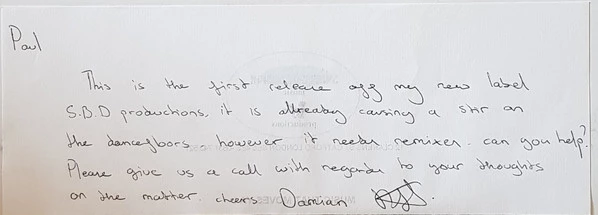 Paul
This is the first release off my new label
S.B.D productions, it is already causing a stir on
the dancefloors, however it needs remixer. can you help?
Please give us a call with regards to your thoughts
on the matter. cheers Damian